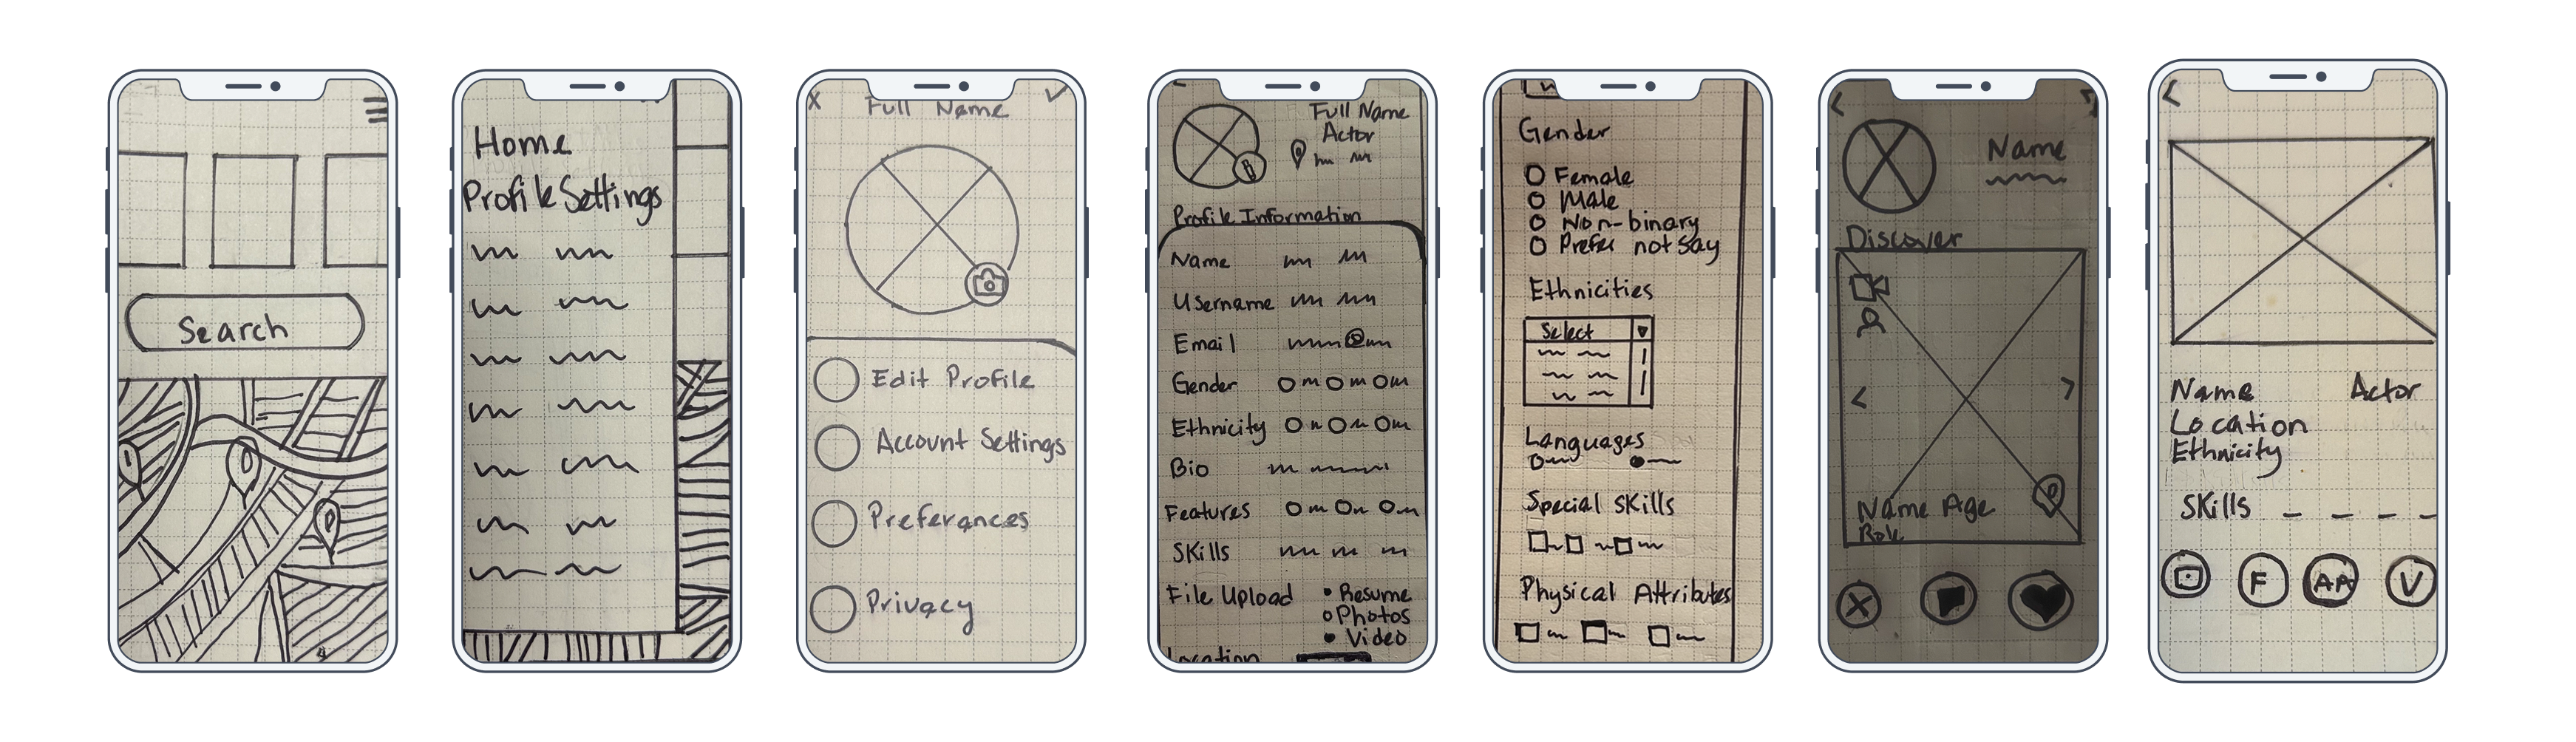 Search
Home
Profile Settings
X Full Name
Edit Profile
Account Settings
Preferances
Privacy
Full Name
Actor
Profile Information
Name
Username
Email @
Gender
Ethnicity
Bio
Features
Skills
File Upload • Resume
Photos
• Video
Location
Gender
Female
Male
Non-binary
Prefer not say
Ethnicities
Select
Languages
Special Skills
Physical Attributes
Name
Discover
Name Age
Role
Name Actor
Location
Ethnicity
Skills
F AA V